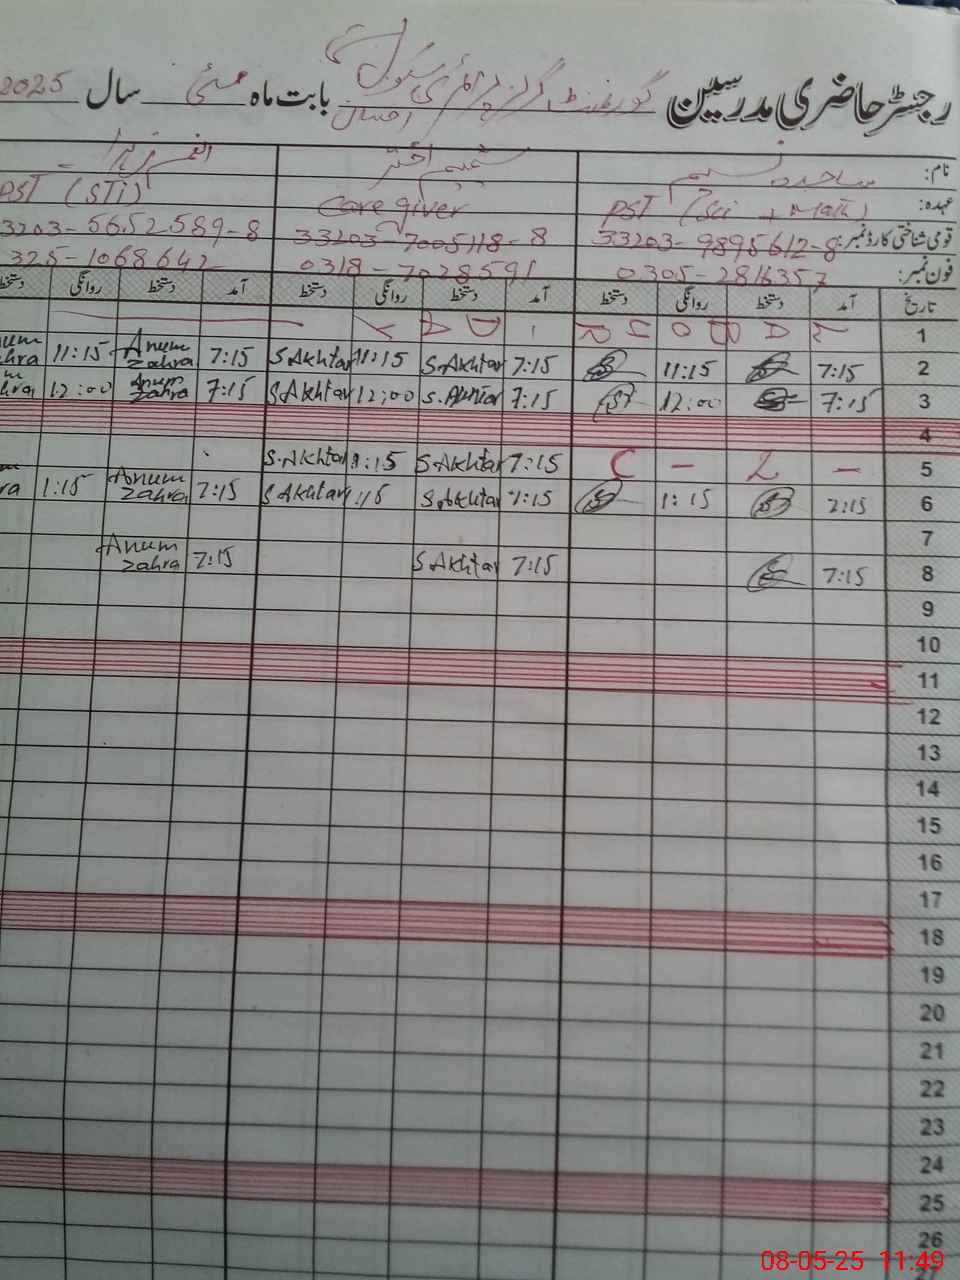 رجسٹر حاضری مدرسین گورنمنٹ گرلز پرائمری سکول بابت ماہ مئی سال 2025
نام: ساجدہ نسیم شمیم اختر
عہدہ: PST (Sci + Math) Care giver PST (STI)
قومی شناختی کارڈ نمبر: 33203-9895612-8 33203-7005118-8 3203-5652589-8
فون نمبر: 0305-2816357 0318-7028591 325-1068642
تاریخ آمد دستخط روانگی دستخط آمد دستخط روانگی دستخط آمد دستخط روانگی دستخط
1 L A B O U R D A Y
2 7:15 11:15 7:15 S.Akhtar 11:15 S.Akhtar 7:15 Anum Zahra 11:15
3 7:15 12:00 7:15 S.Akhtar 12:00 S.Akhtar 7:15 Anum Zahra 12:00
4
5 - L - C 7:15 S.Akhtar 1:15 S.Akhtar
6 7:15 1:15 7:15 S.Akhtar 1:15 S.Akhtar 7:15 Anum Zahra 1:15
7
8 7:15 7:15 S.Akhtar 7:15 Anum Zahra
9
10
11
12
13
14
15
16
17
18
19
20
21
22
23
24
25
26
27
08-05-25 11:49